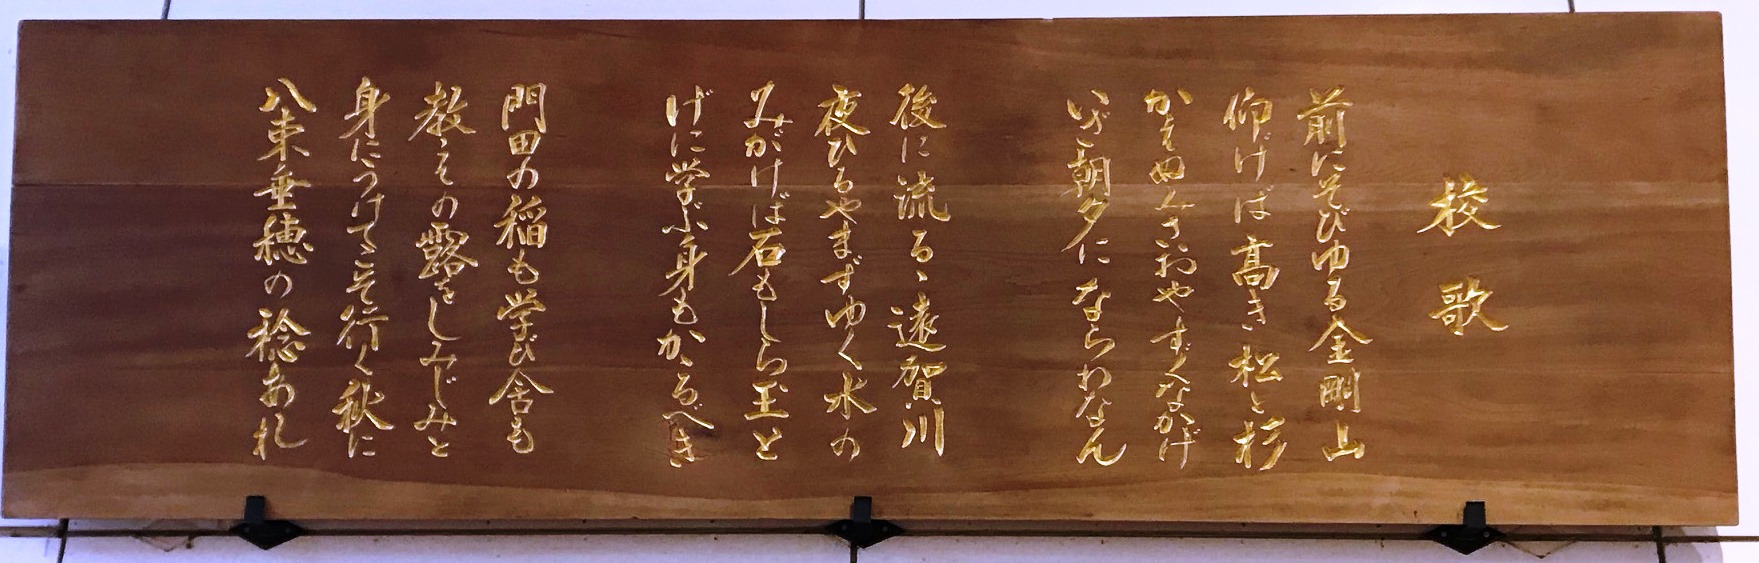 校歌
前にそびゆる金剛山
仰げば高き松と杉
かえぬみさおやすぐなかげ
いざ朝夕にならわなん
後に流るゝ遠賀川
夜ひるやまずゆく水の
みがけば石もしら玉と
げに学ぶ身もかゝるべき
門田の稲も学び舎も
教えの露をしみじみと
身につけてこそ行く秋に
八束垂穂の稔あれ